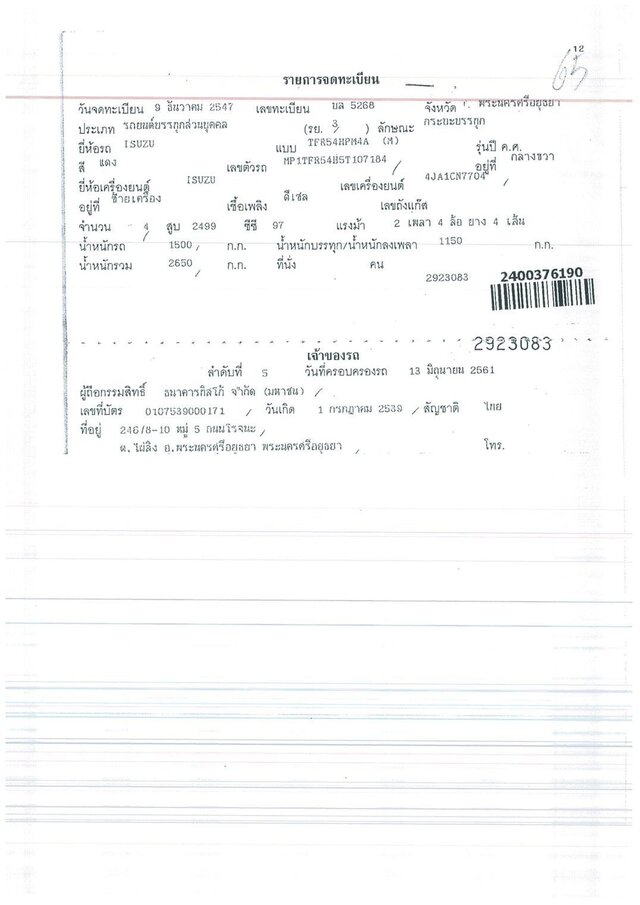 12
65
รายการจดทะเบียน
วันจดทะเบียน 9 ธันวาคม 2547 เลขทะเบียน บล 5268 จังหวัด พระนครศรีอยุธยา
ประเภท รถยนต์บรรทุกส่วนบุคคล (รย. 3 ) ลักษณะ กระบะบรรทุก
ยี่ห้อรถ ISUZU แบบ TFR54HPM4A (M) รุ่นปี ค.ศ.
สี แดง เลขตัวรถ MP1TFR54H5T107184 อยู่ที่ กลางขวา
ยี่ห้อเครื่องยนต์ ISUZU เลขเครื่องยนต์ 4JA1CN7704
อยู่ที่ ซ้ายเครื่อง เชื้อเพลิง ดีเซล เลขถังแก๊ส
จำนวน 4 สูบ 2499 ซีซี 97 แรงม้า 2 เพลา 4 ล้อ ยาง 4 เส้น
น้ำหนักรถ 1500 ก.ก. น้ำหนักบรรทุก/น้ำหนักลงเพลา 1150 ก.ก.
น้ำหนักรวม 2650 ก.ก. ที่นั่ง คน
2923083
2400376190
2923083
เจ้าของรถ
ลำดับที่ 5 วันที่ครอบครองรถ 13 มิถุนายน 2561
ผู้ถือกรรมสิทธิ์ ธนาคารทิสโก้ จำกัด (มหาชน)
เลขที่บัตร 0107539000171 วันเกิด 1 กรกฎาคม 2539 สัญชาติ ไทย
ที่อยู่ 246/8-10 หมู่ 5 ถนนโรจนะ
ต.ไผ่ลิง อ.พระนครศรีอยุธยา พระนครศรีอยุธยา โทร.